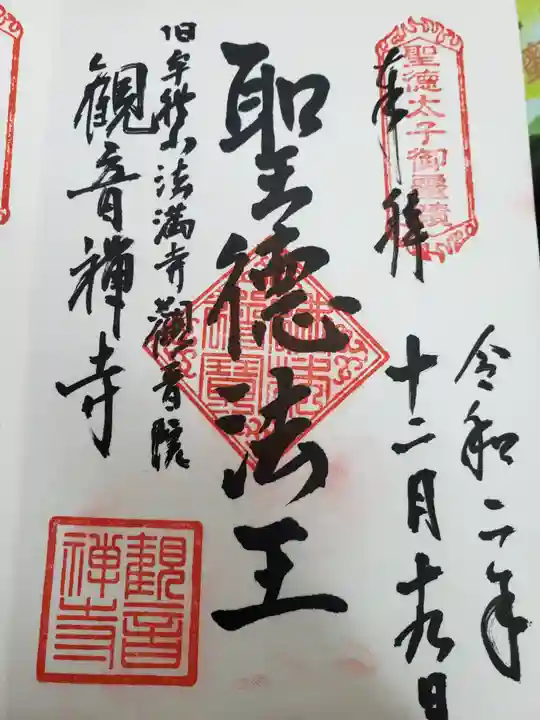 聖徳太子御霊蹟
奉拝
令和二年
十二月十九日
聖徳法王
法満寺觀音院
觀音禅寺
觀音
禅寺